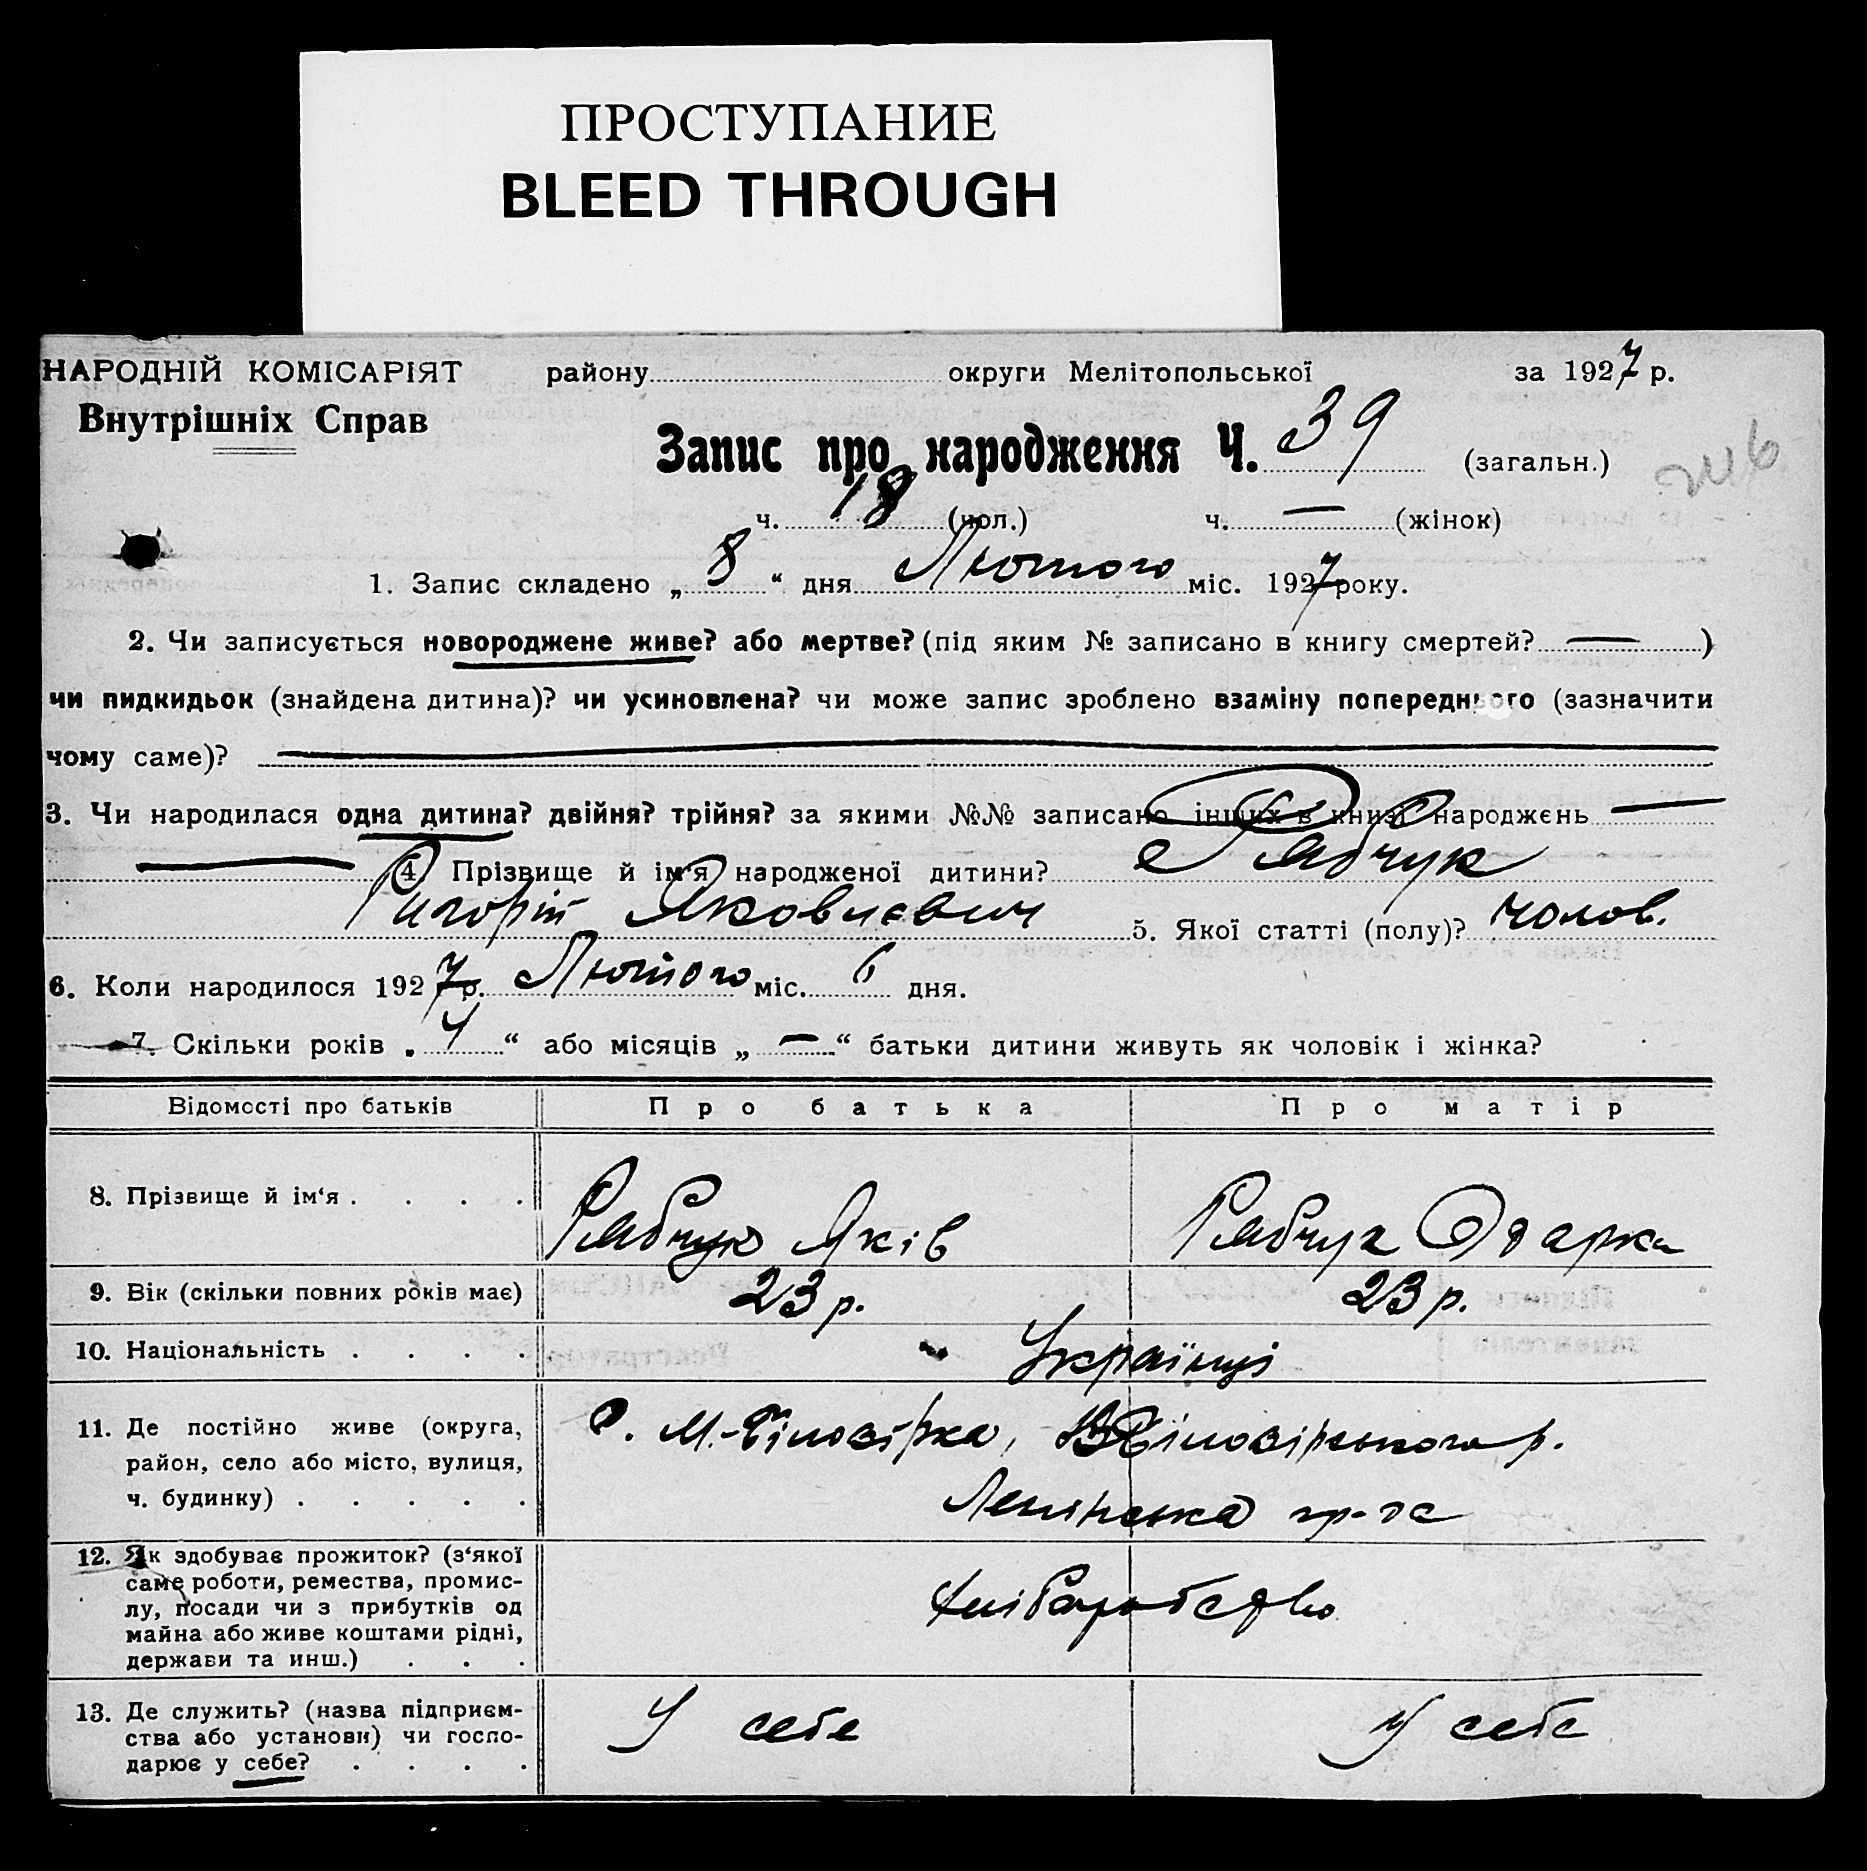 ПРОСТУПАНИЕ
BLEED THROUGH
НАРОДНІЙ КОМІСАРІЯТ району округи Мелітопольської за 1927 р.
Внутрішніх Справ
Запис про народження Ч. 39 (загальн.)
ч. 18 (чол.) ч. — (жінок)
1. Запис складено „ 8 “ дня Лютого міс. 1927 року.
2. Чи записується новороджене живе? або мертве? (під яким № записано в книгу смертей? — )
чи пидкидьок (знайдена дитина)? чи усиновлена? чи може запис зроблено взаміну попереднього (зазначити
чому саме)? —
3. Чи народилася одна дитина? двійня? трійня? за якими №№ записано інших в книзі народжень —
— 4. Прізвище й ім'я народженої дитини? Рябчук
Григорій Яковлєвич 5. Якої статті (полу)? чолов.
6. Коли народилося 1927 р. Лютого міс. 6 дня.
7. Скільки років „ 4 “ або місяців „ — “ батьки дитини живуть як чоловік і жінка?
Відомості про батьків Про батька Про матір
8. Прізвище й ім‘я . . . . Рябчук Яків Рябчук Одарка
9. Вік (скільки повних років має) 23 р. 23 р.
10. Національність . . . . Українці
11. Де постійно живе (округа,
район, село або місто, вулиця,
ч. будинку) . . . . .
С. М.-Білозірка, В Білозірського р.
12. Як здобуває прожиток? (з‘якої
саме роботи, ремества, промис-
лу, посади чи з прибутків од
майна або живе коштами рідні,
держави та инш.) . . .
Хліборобство
13. Де служить? (назва підприєм-
ства або установи) чи госпо-
дарює у себе? . . . .
У себе У себе